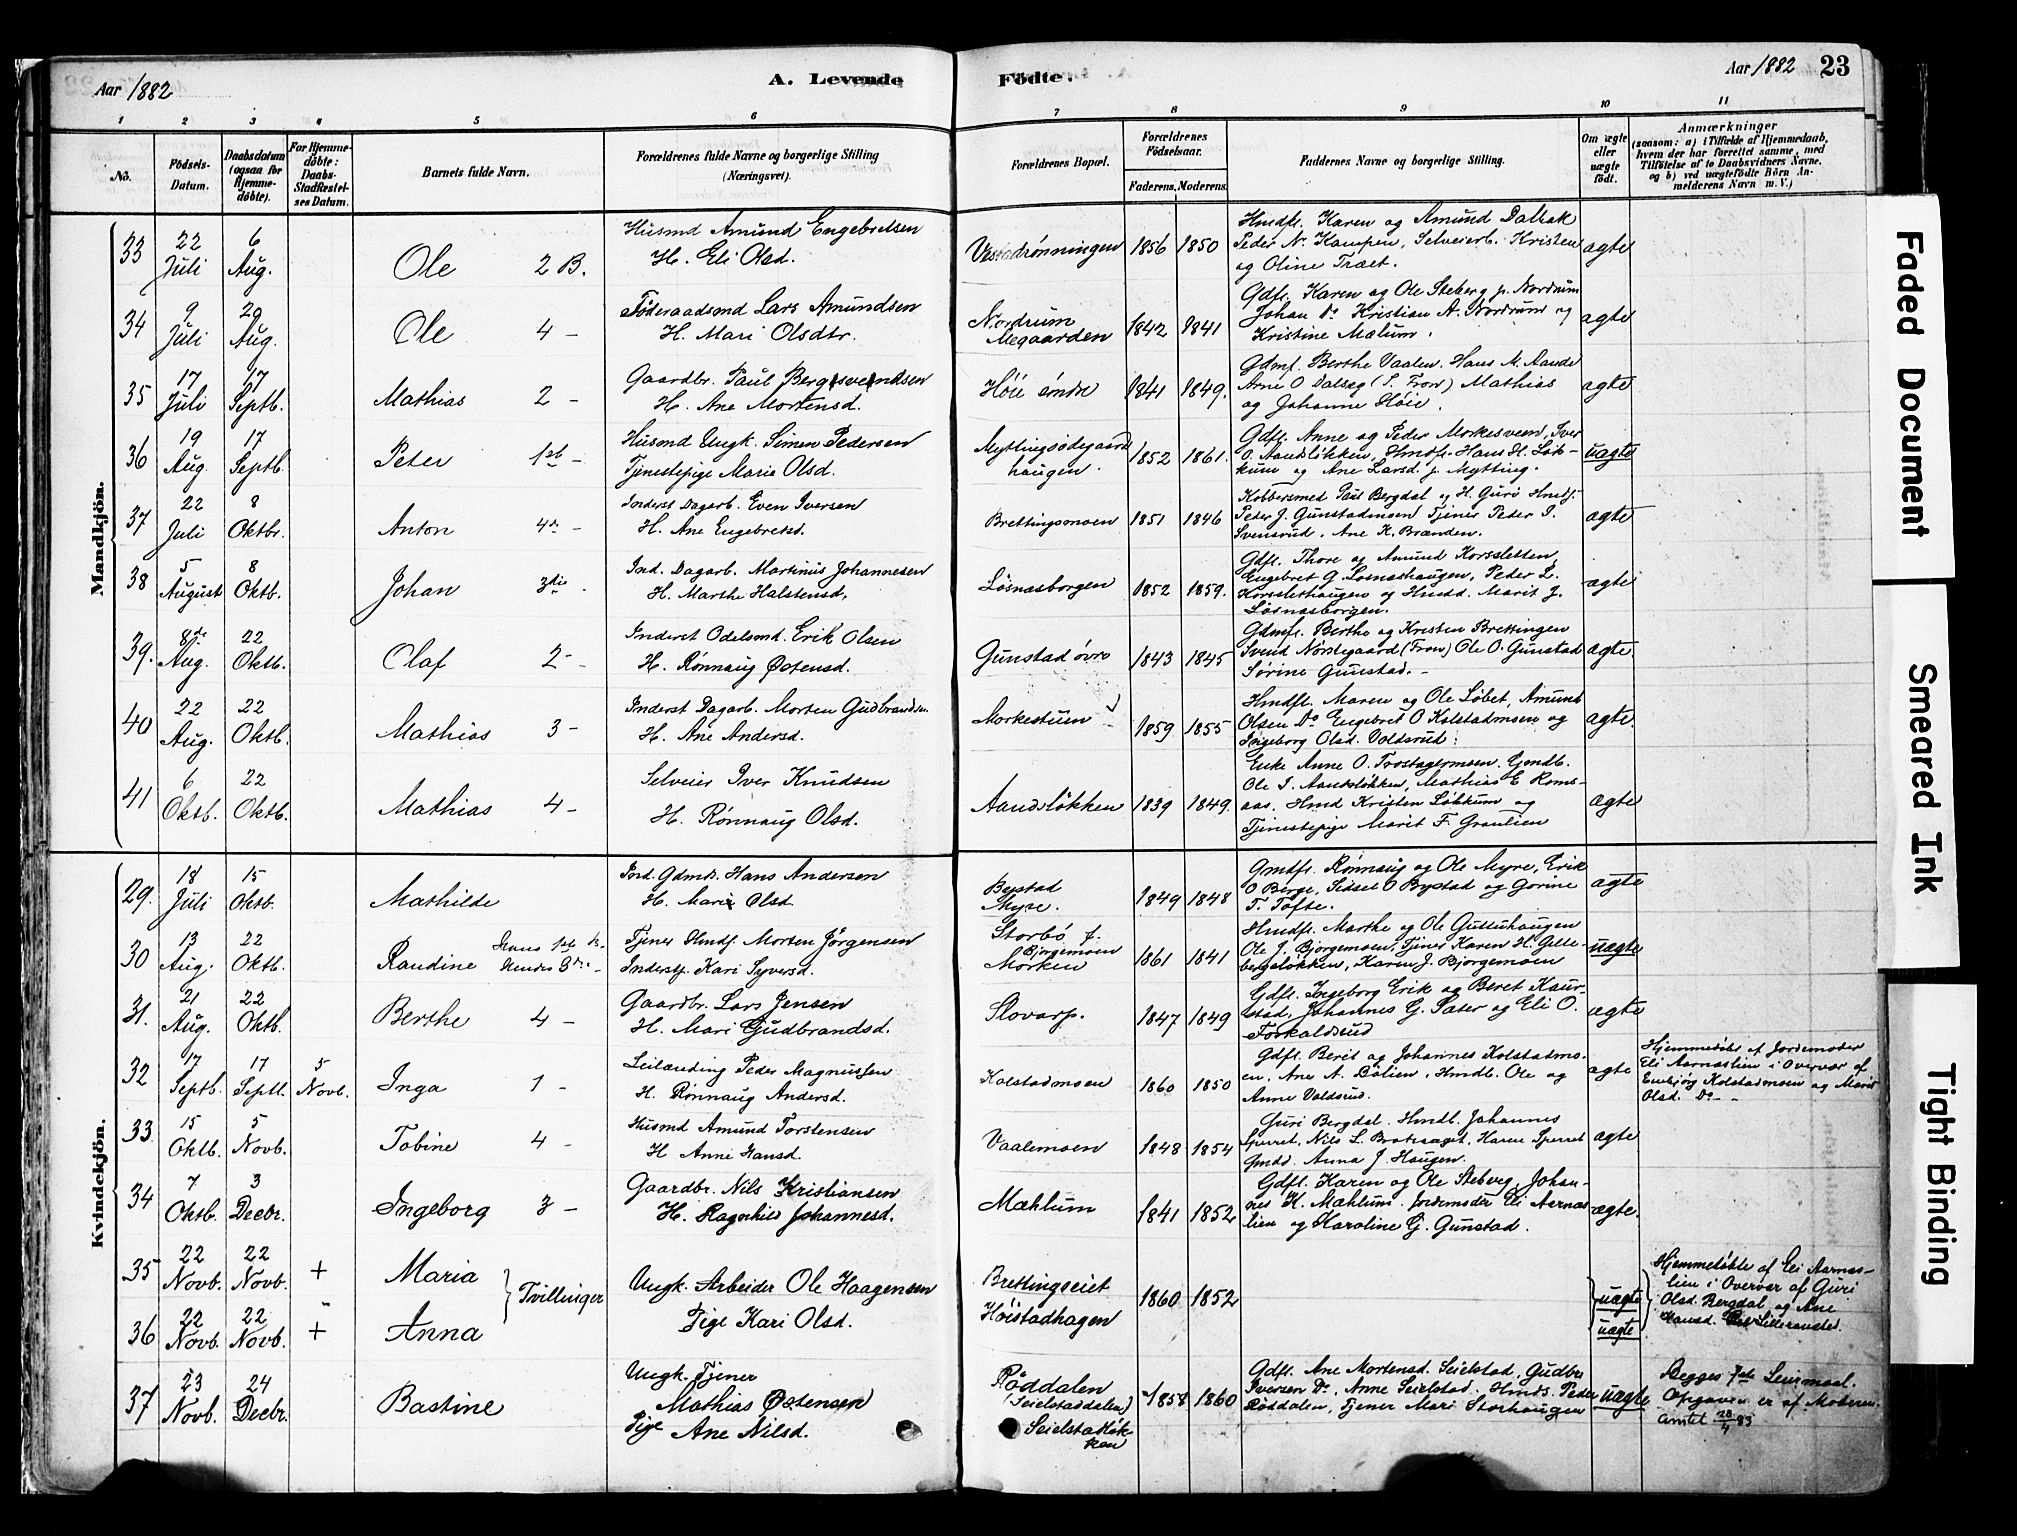 Aar 1882
A. Levende
Födte.
Aar 1882
23
1 2 3 4 5 6 7 8 9 10 11
No.
Födsels-Datum.
Daabsdatum (ogsaa for Hjemme-döbte).
For Hjemme-döbte: Daabs-Stadfæstel-ses Datum.
Barnets fulde Navn.
Forældrenes fulde Navne og borgerlige Stilling
(Næringsvei).
Forældrenes Bopæl.
Forældrenes Födselsaar.
Faderens. Moderens.
Faddernes Navne og borgerlige Stilling.
Om ægte eller uægte födt.
Anmærkninger
(saasom: a) i Tilfælde af Hjemmedaab, hvem der har forrettet samme, med Tilföielse af to Daabsvidners Navne. og b) ved uægtefödte Börn An-melderens Navn m. V.)
Mandkjön.
33 22 Juli 6 Aug. Ole 2 B.
Husmd Amund Engebretsen
H. Eli Olsd.
Vestadrønningen 1856 1850
Hmdfl. Karen og Amund Dalbak
Peder N. Kampen, Selveierb. Kristen
og Oline Træet.
ægte
34 9 Juli 20 Aug. Ole 4 -
Føderaadsmd Lars Amundsen
H. Mari Olsdtr.
Nordrum
Megaarden 1842 1841
Gdfl. Karen og Ole Steberg p. Nordrum
Johan Do Kristian A. Nordrum og
Kristine Mælum.
ægte
35 17 Juli 17 Septb. Mathias 2 -
Gaardbr. Paul Bergsvendsen
H. Ane Mortensd.
Høie søndre 1841 1849.
Gdmf. Berthe Vaalen, Hans M. Aande
Arne O Dalseg (S. Fron) Mathias
og Johanne Høie.
ægte
36 19 Aug. 17 Septb. Peter 1ste -
Husmd Ungk. Simen Pedersen
Tjenestepige Marie Olsd.
Myttingsødegaard
haugen. 1852 1861.
Gdfl. Anne og Peder Morkesveen, Iver
O. Aandsløkken, Hmdfr. Hans H. Løk-
kum og Ane Larsd. p. Mytting.
uægte
37 22 Juli 8 Oktbr. Anton 4de -
Inderst Dagarb. Even Iversen
H. Ane Engebretsd.
Brettingsmoen 1851 1846
Kobbersmed Paul Bergdal og H. Guri Hmdf.
Peder J. Gunstadmoen Tjener Peter S.
Svensrud, Ane K. Brænden.
ægte
38 5 August 8 Oktb. Johan 3die -
Ind. Dagarb. Martinus Johannesen
H. Marthe Halstensd.
Løsnæsborgen 1852 1859.
Gdfl. Thore og Amund Korssletten,
Engebret G. Losnæshaugen, Peder L.
Korsslethaugen og Hmdd. Marit J.
Løsnæsborgen.
ægte
39. 8de Aug. 22 Oktb. Olaf 2 -
Inderst Odelsmd. Erik Olsen
H. Rønnaug Østensd.
Gunstad øvre 1843 1845
Gdmfl. Berthe og Kristen Brettingen
Svend Nørstegaard (Fron) Ole O. Gunstad
Sørine Gunstad. -
ægte
40 22 Aug. 22 Oktb. Mathias 3 -
Inderst Dagarb. Morten Gudbrandsn.
H. Ane Andersd.
Morkestuen 1859 1855
Hmdfl. Maren og Ole Løbet, Amund
Olsen Do Engebret O Kolstadmoen og
Ingeborg Olsd. Voldsrud.
ægte
41 6 Oktb. 22 Oktb. Mathias 4 -
Selveier Iver Knudsen
H. Rønnaug Olsd.
Aandsløkken 1839 1849.
Enke Anne O. Trostagermoen, Gmdb.
Ole I. Aandsløkken, Mathias E. Roms-
aas. Hmd Kristen Løkkum og
Tjenestepige Marit F. Granlien
ægte
Kvindekjön.
29. 18 Juli 15 Oktb. Mathilde
Ind. Gdmds. Hans Andersen
H. Mari Olsd
Bystad
Myre. 1849 1848
Gmdfl. Rønnaug og Ole Myre, Erik
O Berge, Sidsel O Bystad og Gorine
T. Tofte.
ægte
30 13 Aug. 22 Oktb. Randine Hans 1ste B.
Hendes 3die -
Tjener Hmdf. Morten Jørgensen
Inderstp. Kari Syversd.
Storbø f.
Bjørgemoen
Morken 1861 1841
Hmdfl. Marthe og Ole Guttuhaugen
Ole J. Bjørgemoen, Tjener Karen H. Gille-
bergsløkken, Karen J. Bjørgemoen
uægte
31. 21 Aug. 22 Oktb. Berthe 4 -
Gaardbr. Lars Jensen
H. Mari Gudbrandsd.
Slovarp. 1847 1849
Gdfl. Ingeborg Erik og Beret Kaur-
stad, Johannes G. Sater og Eli O.
Forkalsrud
ægte
32 17 Septb. 17 Septl. 5 Novb. Inga 1 -
Leilænding Peder Magnussen
H. Rønnaug Andersd.
Kolstadmoen 1860 1850
Gdfl. Berit og Johannes Kolstadmo-
en, Ane A. Bølien, Hmdb. Ole og
Anne Voldsrud.
ægte
Hjemmedøbt af Jordemoder
Eli Aarnæslien i Overvær af
Embjørg Kolstadmoen og Marit
Olsd. Do -
33. 15 Oktb. 5 Novb. Tobine 4 -
Husmd Amund Torstensen
H Anne Hansd.
Vaalemoen 1848 1854
Guri Bergdal. Hmdb. Johannes
Sperret, Nils L. Bratsaget, Karen Sperret
Gmdd. Anna J. Haugen.
ægte
34 7 Oktb. 3 Decbr. Ingeborg 3 -
Gaardbr. Nils Kristiansen
H. Ragnhild Johannesd.
Mæhlum 1841 1852
Gdfl. Karen og Ole Steberg, Johan-
nes K. Mæhlum. Jordemoder Eli Aarnæs
lien og Karoline G. Gunstad.
ægte.
35 22 Novb. 22 Novb. + Maria
36 22 Novb. 22 Novb. + Anna
Tvillinger
Ungk. Arbeider Ole Haagensen
Pige Kari Olsd.
Brettingseiet
Høistadhagen 1860 1852
uægte
uægte
Hjemmedøbte af Eli Aarnæs-
lien i Overvær af Guri
Olsd. Bergdal og Ane
Hansd. Lillerønsted.
37 23 Novb. 24 Decbr. Bastine
Ungk. Tjener
Mathias Østensen
Pige Ane Nilsd.
Røddalen
(Seielstaddalen)
Seielstadløk-
ken 1858 1860
Gdfl. Ane Mortensd. Seielstad, Gudbr.
Iversen Do, Anne Seielstad. Hmds. Peder
Røddalen, Tjener Mari Storhaugen
uægte
Begges 1ste Leiermaal.
Opgaven er af Moderen.
Amtet 20/4 83
Faded Document
Smeared Ink
Tight Binding